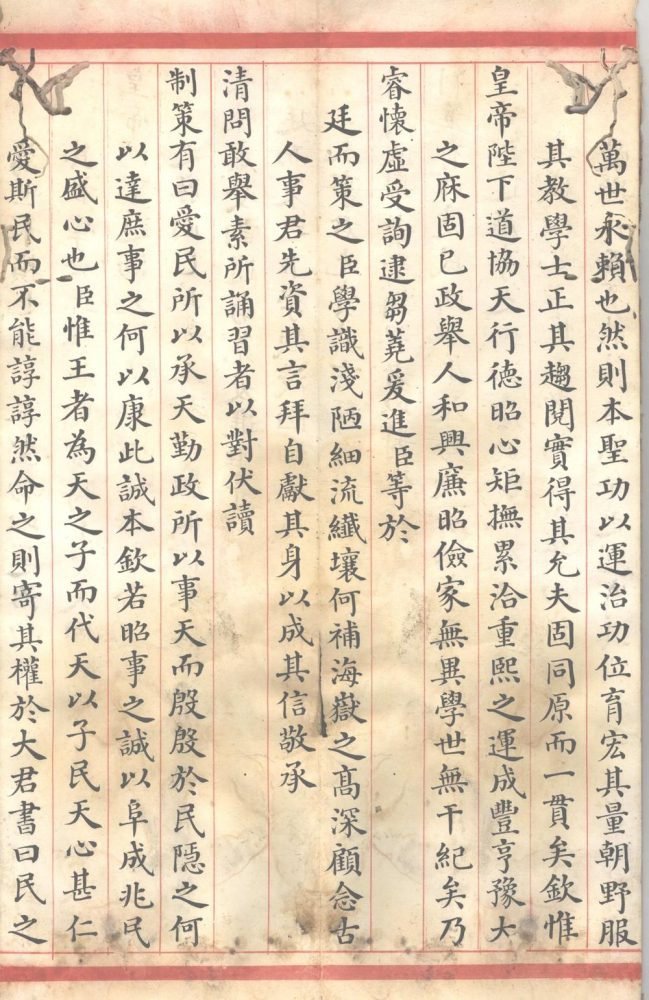 萬世永賴也然則本聖功以運治功位育宏其量朝野服
其教學士正其趨閱實得其允夫固同原而一貫矣欽惟
皇帝陛下道協天行德昭心矩撫累洽重熙之運成豐亨豫大
之庥固已政舉人和興廉昭儉家無異學世無干紀矣乃
睿懷虛受詢逮芻蕘爰進臣等於
廷而策之臣學識淺陋細流纖壤何補海嶽之高深顧念古
人事君先資其言拜自獻其身以成其信敬承
清問敢舉素所誦習者以對伏讀
制策有曰愛民所以承天勤政所以事天而殷殷於民隱之何
以達庶事之何以康此誠本欽若昭事之誠以阜成兆民
之盛心也臣惟王者為天之子而代天以子民天心甚仁
愛斯民而不能諄諄然命之則寄其權於大君書曰民之